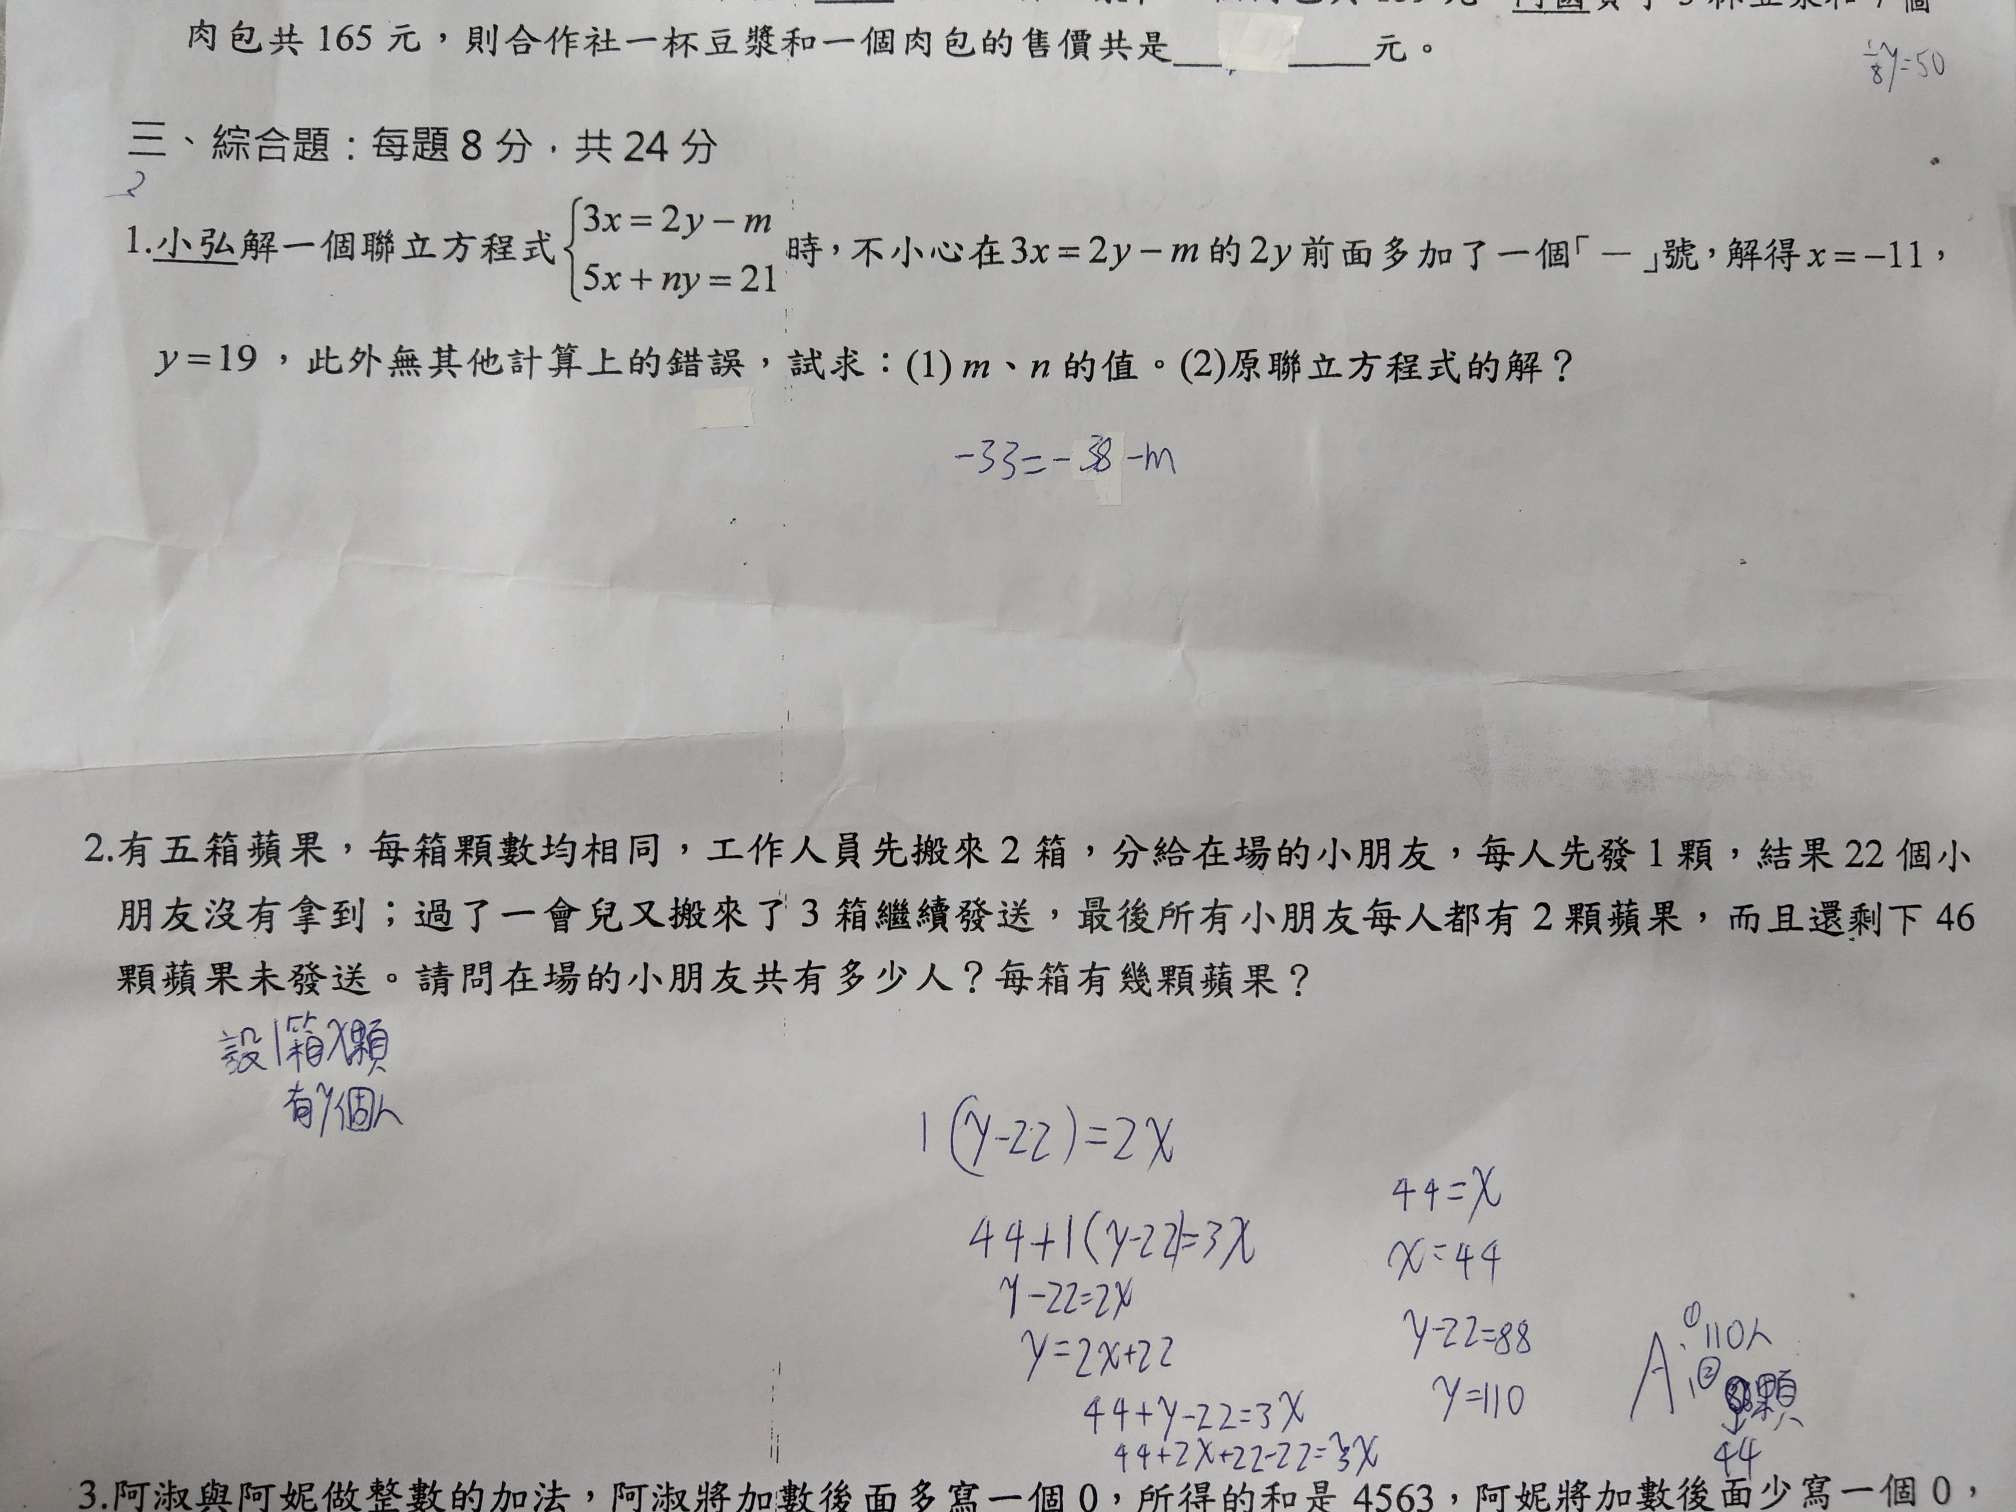 肉包共 165 元，則合作社一杯豆漿和一個肉包的售價共是＿＿＿＿元。
1/8 y=50
三、綜合題：每題 8 分，共 24 分
2
1.小弘解一個聯立方程式 { 3x = 2y − m
5x + ny = 21 時，不小心在 3x = 2y − m 的 2y 前面多加了一個「－」號，解得 x = −11，
y = 19，此外無其他計算上的錯誤，試求：(1) m、n 的值。(2)原聯立方程式的解？
-33=-38-m
2.有五箱蘋果，每箱顆數均相同，工作人員先搬來 2 箱，分給在場的小朋友，每人先發 1 顆，結果 22 個小
朋友沒有拿到；過了一會兒又搬來了 3 箱繼續發送，最後所有小朋友每人都有 2 顆蘋果，而且還剩下 46
顆蘋果未發送。請問在場的小朋友共有多少人？每箱有幾顆蘋果？
設1箱x顆
有y個人
1(y-22)=2x
44+1(y-22)=3x
y-22=2x
y=2x+22
44+y-22=3x
44+2x+22-22=3x
44=x
x=44
y-22=88
y=110
A:①110人
②顆
44
3.阿淑與阿妮做整數的加法，阿淑將加數後面多寫一個 0，所得的和是 4563，阿妮將加數後面少寫一個 0，